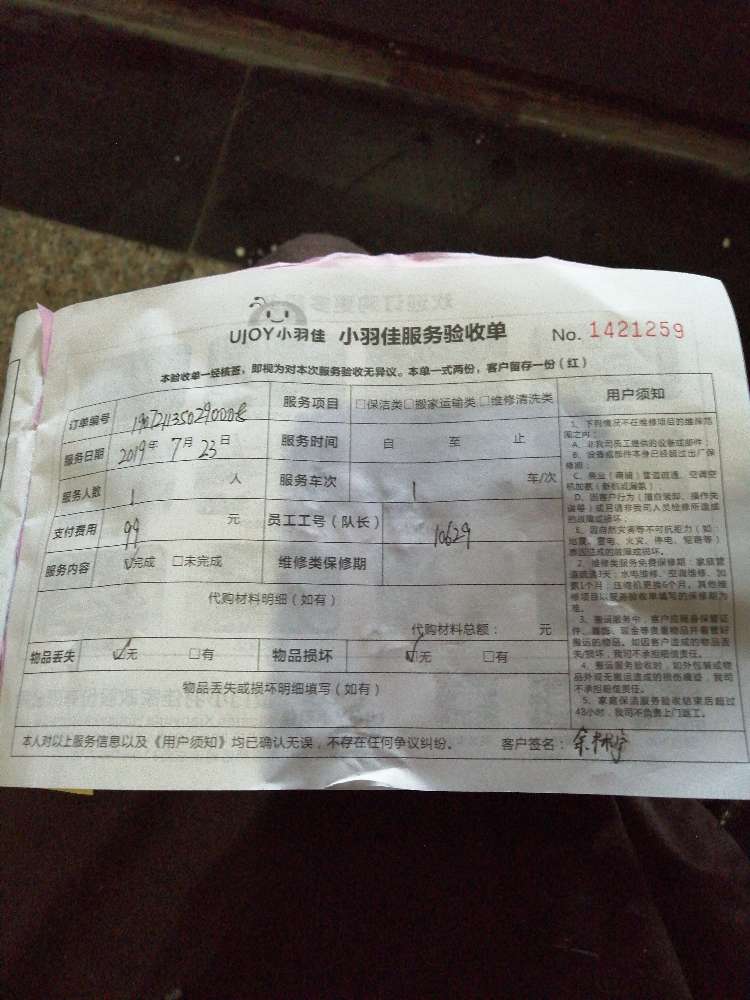 UJOY小羽佳 小羽佳服务验收单 No. 1421259
本验收单一经核签，即视为对本次服务验收无异议。本单一式两份，客户留存一份（红）
订单编号 服务项目 □保洁类□搬家运输类□维修清洗类 用户须知
服务日期 2019年 7月 23日 服务时间 自 至 止
服务人数 1 人 服务车次 1 车/次
支付费用 99 元 员工工号（队长） 10629
服务内容 ☑完成 □未完成 维修类保修期
代购材料明细（如有）
代购材料总额： 元
物品丢失 ☑无 □有 物品损坏 ☑无 □有
物品丢失或损坏明细填写（如有）
本人对以上服务信息以及《用户须知》均已确认无误，不存在任何争议纠纷。 客户签名：
1、下列情况不在维修项目的维保范
围之内：
A、非我司员工提供的设备或部件；
B、设备或部件本身已经超过出厂保
修期；
C、商业（商铺）管道疏通、空调空
机加氨（新机或漏氨）
D、因客户行为（擅自装卸、操作失
误等）或另请非我司人员检修所造成
的故障或损坏；
E、因自然灾害等不可抗力（如：
地震、雷电、火灾、停电、短路等）
原因造成的故障或损坏。
2、维修类服务免费保修期：家庭管
道疏通3天；水电维修、空调维修、加
氨1个月；压缩机更换6个月，其他维
修项目以服务验收单填写的保修期为
准。
3、搬运服务中，客户应随身保管证
件、首饰、现金等贵重物品并看管好
搬运的物品。如因客户造成的物品丢
失/损坏，我司不承担赔偿责任。
4、搬运服务验收时，如外包装或物
品外观无搬运造成的损伤痕迹，我司
不承担赔偿责任。
5、家庭保洁服务验收结束后超过
48小时，我司不负责上门返工。